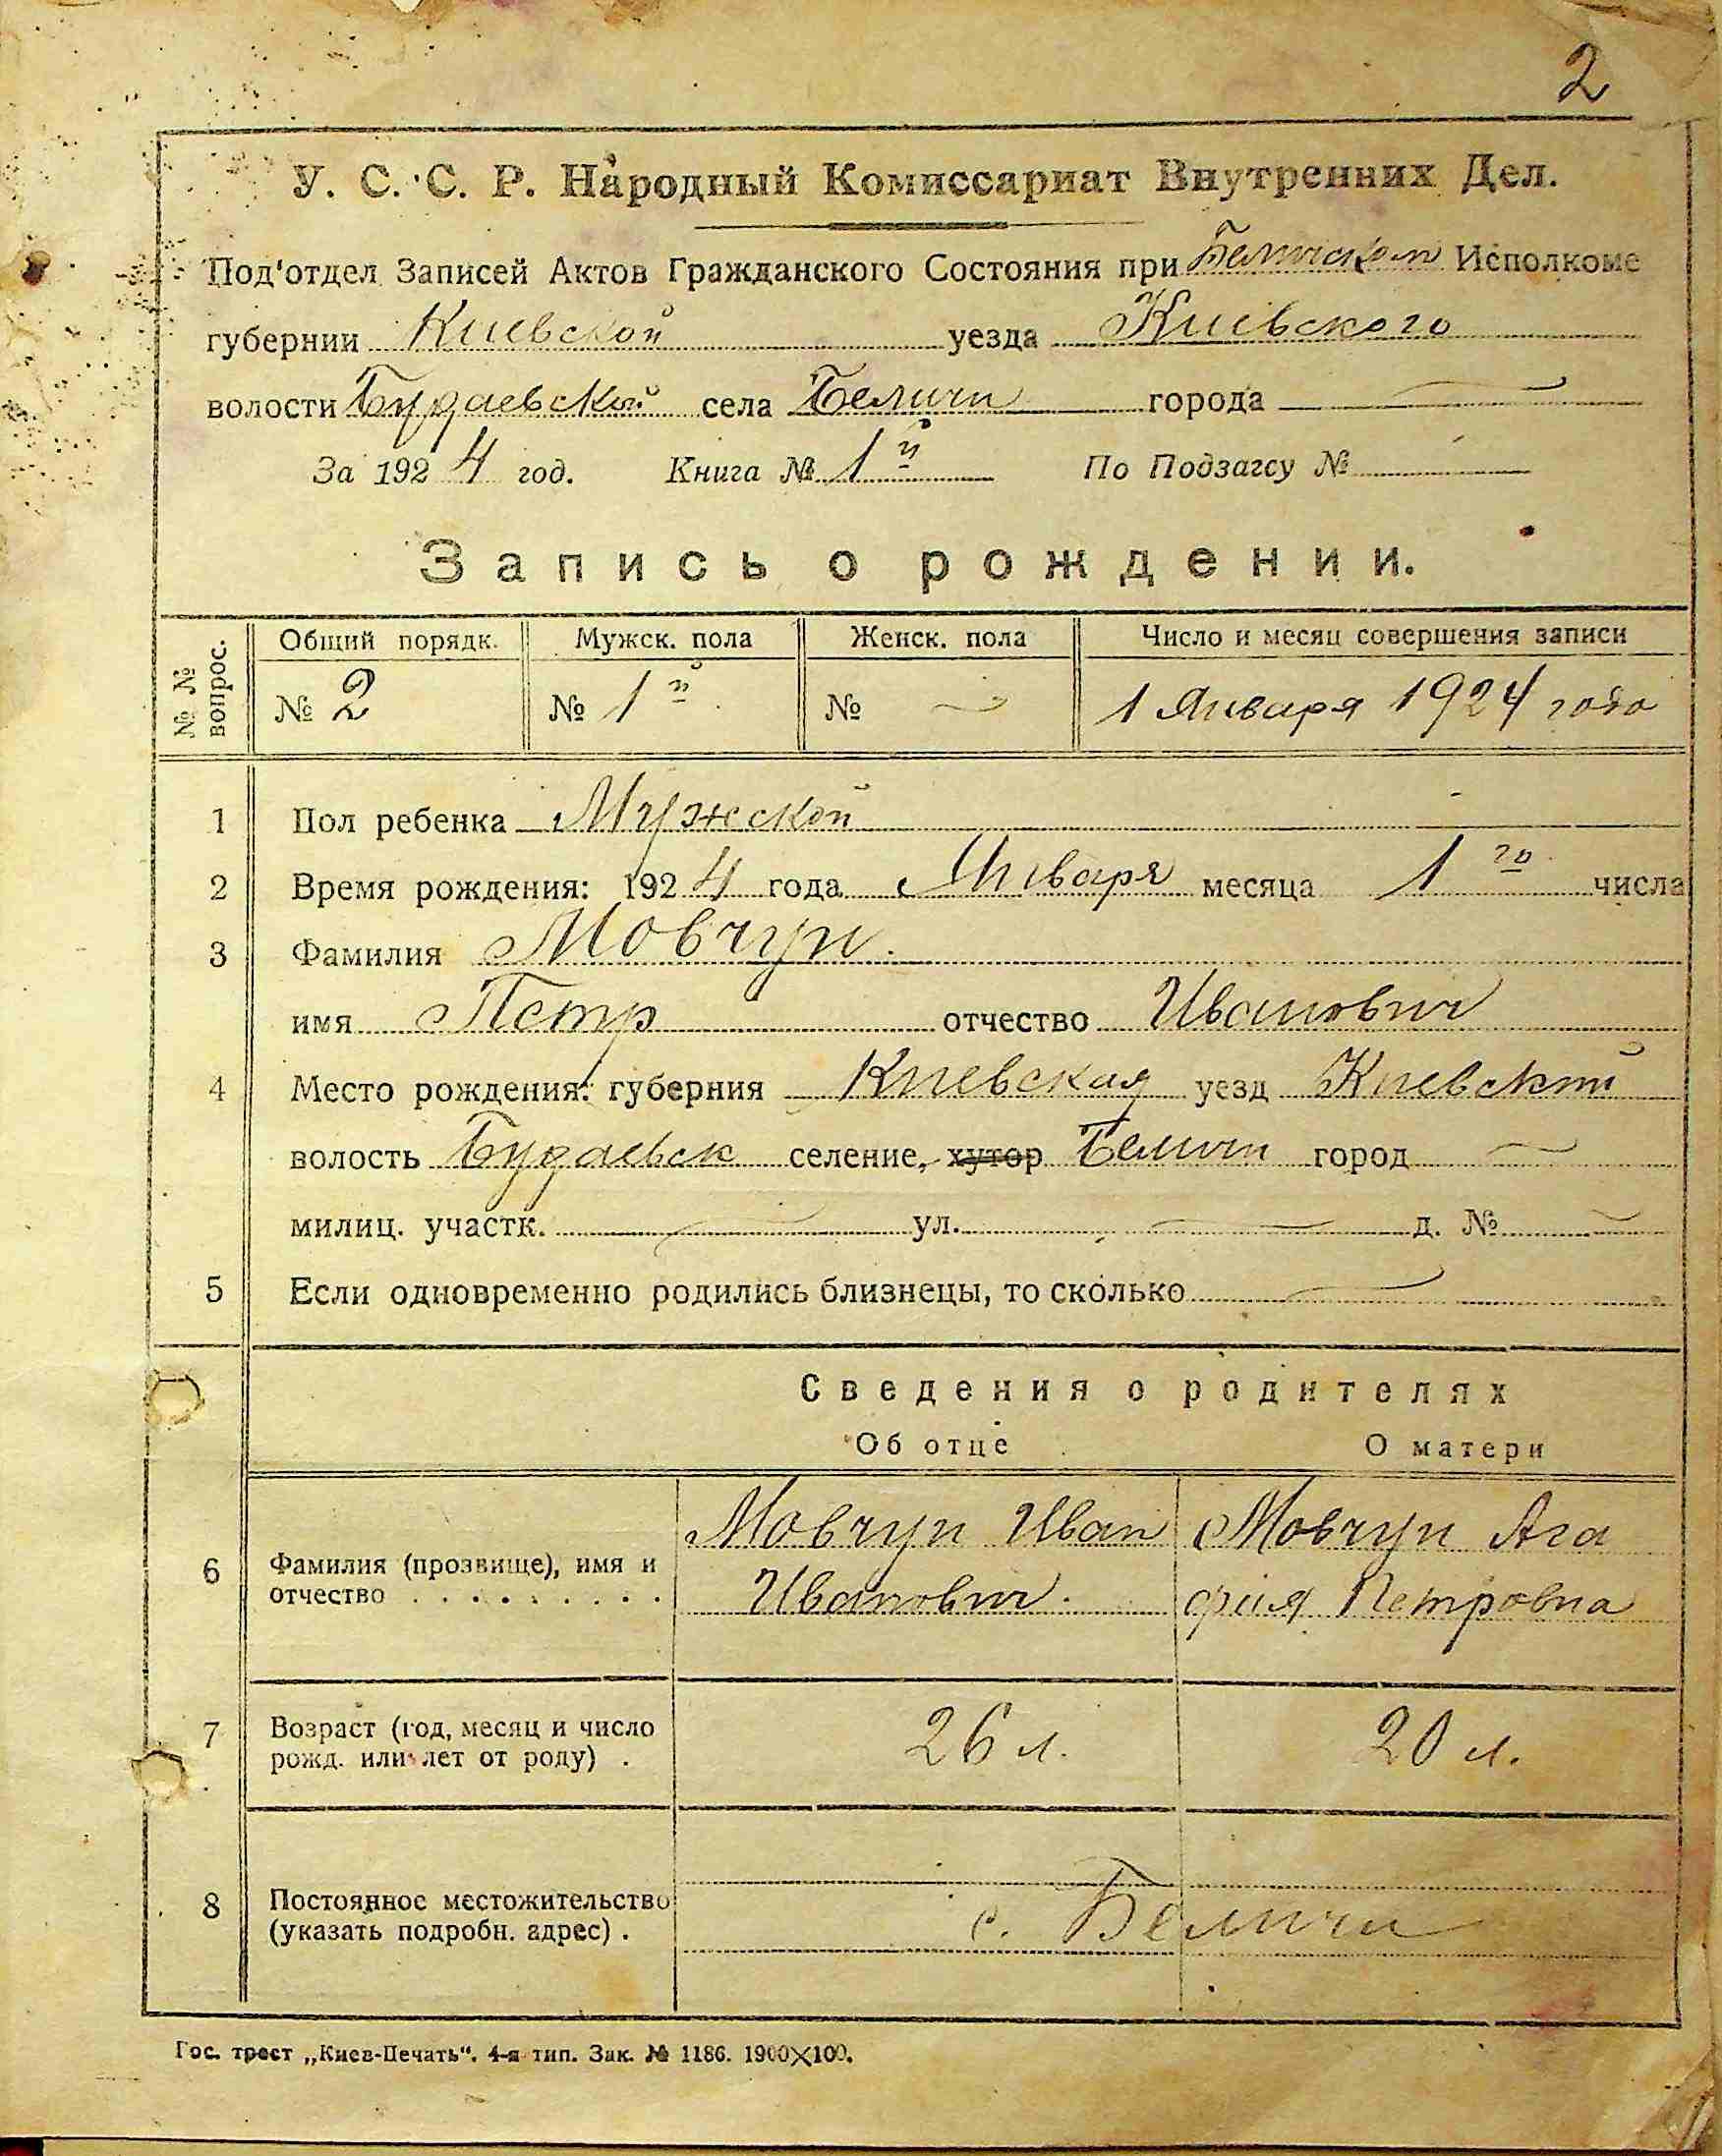 2
У. С. С. Р. Народный Комиссариат Внутренних Дел.
Под'отдел Записей Актов Гражданского Состояния при Беличском Исполкоме
губернии Киевской уезда Киевского
волости Будаевской села Беличи города —
За 1924 год. Книга № 1й По Подзагсу №
Запись о рождении.
№ № вопрос. Общий порядк. Мужск. пола Женск. пола Число и месяц совершения записи
№ 2 № 1й № — 1 Января 1924 года
1 Пол ребенка Мужской
2 Время рождения: 1924 года Января месяца 1го числа
3 Фамилия Мовчун.
имя Петр отчество Иванович
4 Место рождения: губерния Киевская уезд Киевский
волость Будаевск селение, хутор Беличи город —
милиц. участк. — ул. — д. № —
5 Если одновременно родились близнецы, то сколько —
Сведения о родителях
Об отце О матери
Мовчун Иван Мовчун Ага
6 Фамилия (прозвище), имя и
отчество . . . . . . . . . Иванович. фия Петровна
7 Возраст (год, месяц и число
рожд. или лет от роду) . 26 л. 20 л.
8 Постоянное местожительство
(указать подробн. адрес) . с. Беличи
Гос. трест „Киев-Печать“. 4-я тип. Зак. № 1186. 1900×100.